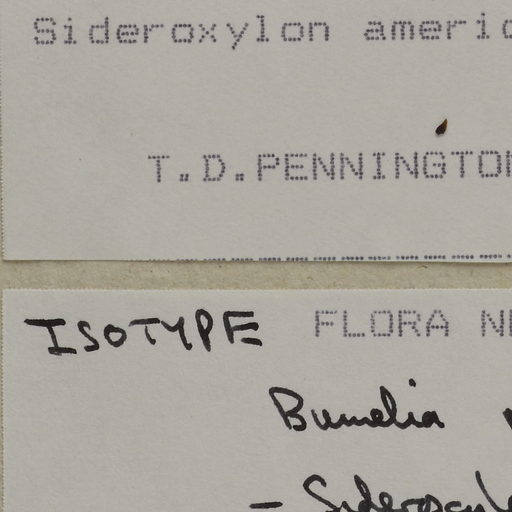 Sideroxylon americ
T.D.PENNINGTON
ISOTYPE FLORA NE
Bumelia
- Sideroxyl